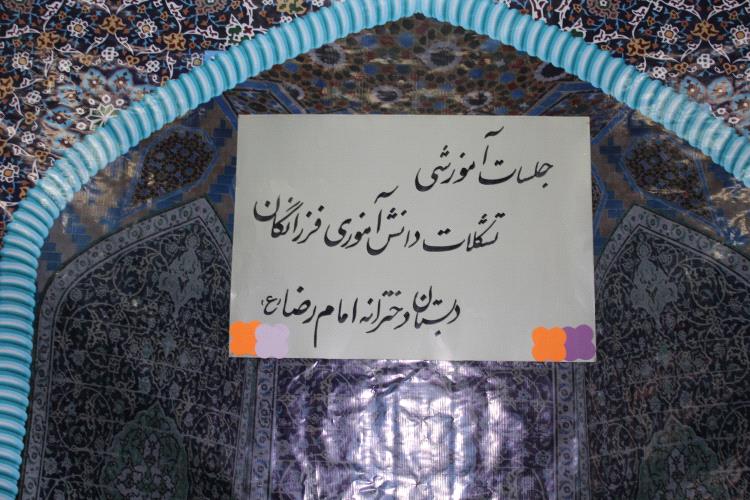 جلسات آموزشی
تشکلات دانش آموزی فرزانگان
دبستان دخترانه امام رضا (ع)